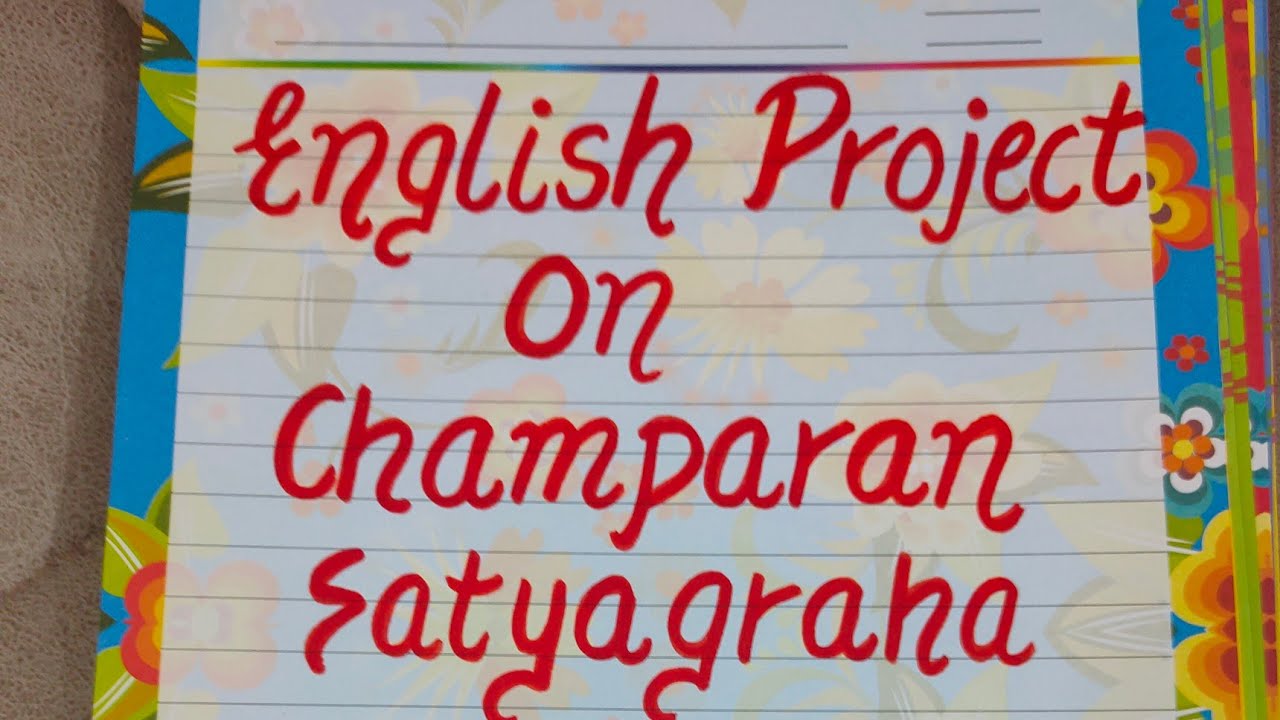 English Project
on
Champaran
Satyagraha